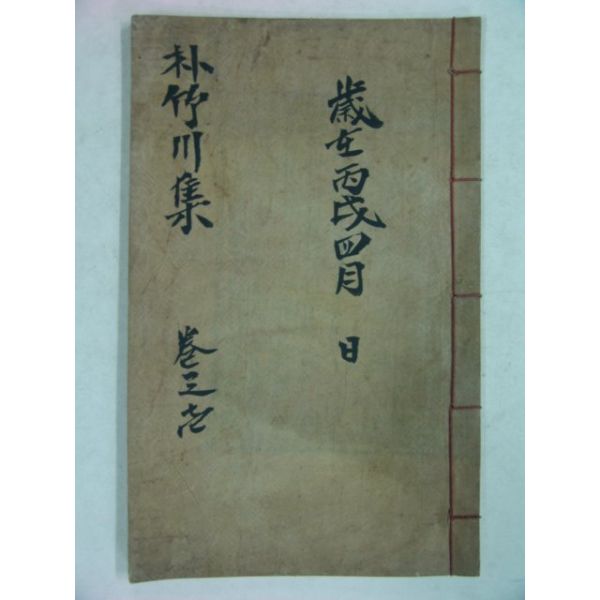 歲在丙戌四月 日
朴竹川集
卷